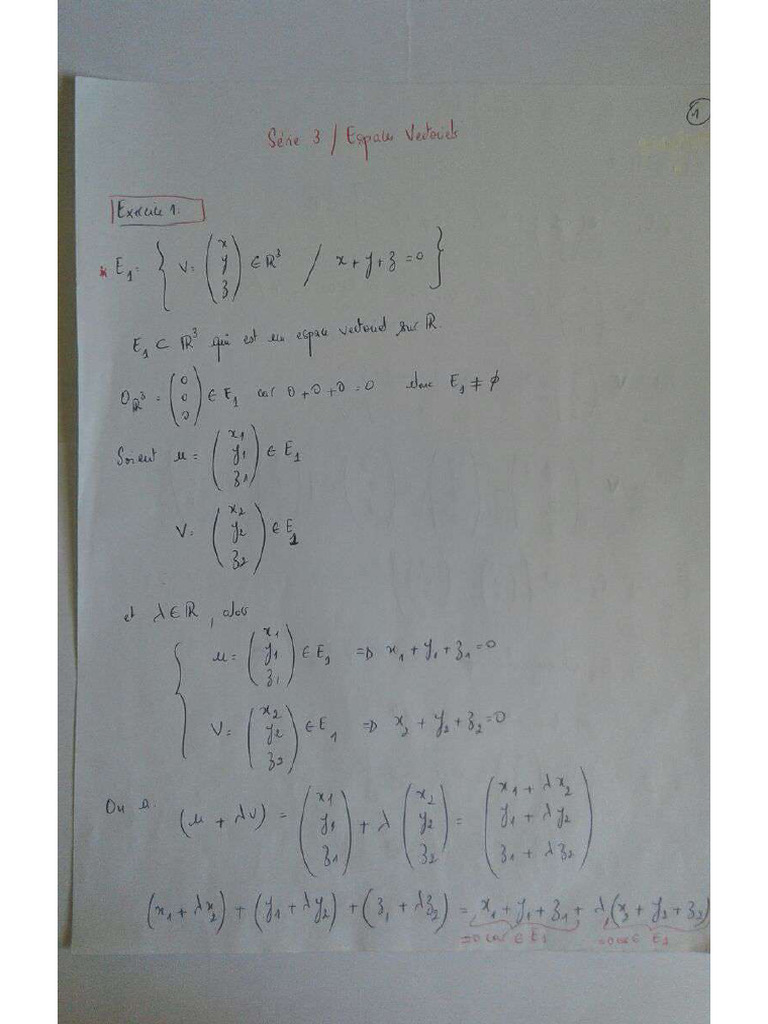 1
Série 3 / Espaces Vectoriels
Exercice 1:
* E₁ = { V = (x y z) ∈ ℝ³ / x + y + z = 0 }
E₁ ⊂ ℝ³ qui est un espace vectoriel sur ℝ.
0_ℝ³ = (0 0 0) ∈ E₁ car 0 + 0 + 0 = 0 donc E₁ ≠ ∅
Soient u = (x₁ y₁ z₁) ∈ E₁
V = (x₂ y₂ z₂) ∈ E₁
et λ ∈ ℝ, alors
{ u = (x₁ y₁ z₁) ∈ E₁ ⇒ x₁ + y₁ + z₁ = 0
V = (x₂ y₂ z₂) ∈ E₁ ⇒ x₂ + y₂ + z₂ = 0
On a. (u + λv) = (x₁ y₁ z₁) + λ (x₂ y₂ z₂) = (x₁ + λx₂ y₁ + λy₂ z₁ + λz₂)
(x₁ + λx₂) + (y₁ + λy₂) + (z₁ + λz₂) = x₁ + y₁ + z₁ + λ(x₂ + y₂ + z₂)
=0 car ∈ E₁ =0 car ∈ E₁